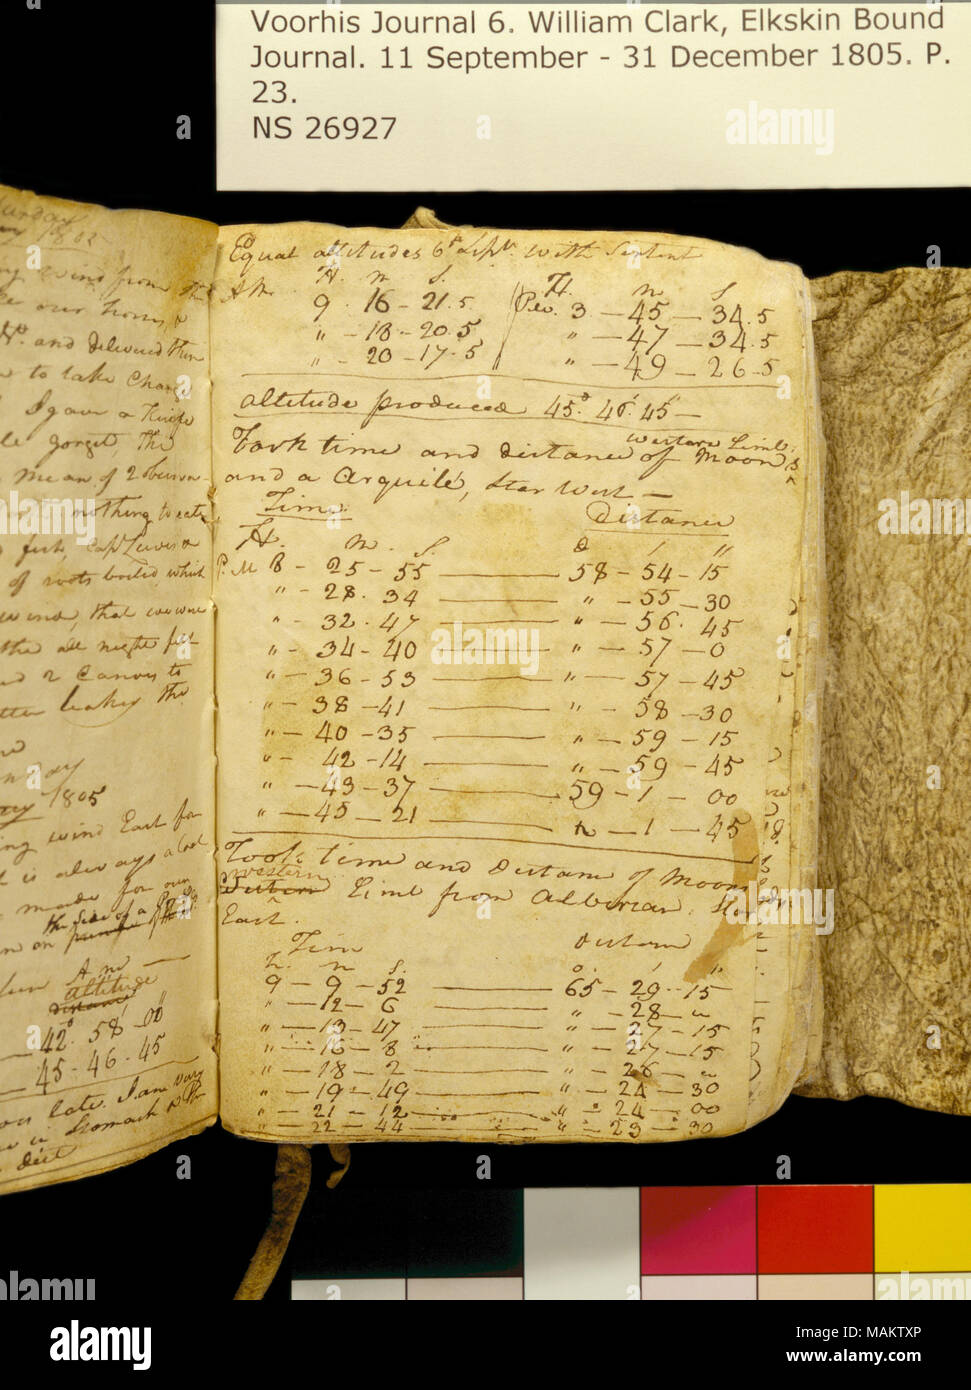 Voorhis Journal 6. William Clark, Elkskin Bound
Journal. 11 September - 31 December 1805. P.
23.
NS 26927
1802
wind from the
our horses
and delivered them
to take Charge
I gave a Knife
gorget, the
Mean of 2 observn
nothing to eate
fish, Capt Lewis &
of roots boiled, which
wind, that we were
the all night felt
2 Canoes to
leakey the
1805
wind East for
is always a Cool
made for our
the Side of a
on
A M
altitude
distance
42° 58' 00"
45 - 46 - 45
late. I am very
in Stomach &
diet
Equal altitudes 6th Septr. with Sextent
H. m S. H. m S
A M. 9 . 16 - 21.5 P.M. 3 - 45 - 34.5
" - 18 - 20.5 " - 47 - 34.5
" - 20 - 17.5 " - 49 - 26.5
altitude produced 45° 46' 45" —
Western Limb
Took time and distance of Moons
and a Arquilé, Star West —
Time Distance
H. m. S. D ' "
P. M 8 - 25 - 55 — 58 - 54 - 15
" - 28 . 34 — " - 55 - 30
" - 32 . 47 — " - 56 . 45
" - 34 - 40 — " - 57 - 0
" - 36 - 53 — " - 57 - 45
" - 38 - 41 — " - 58 - 30
" - 40 - 35 — " - 59 - 15
" - 42 - 14 — " - 59 - 45
" - 43 - 37 — 59 - 1 - 00
" - 45 - 21 — " - 1 - 45
Took time and Distance of Moons
western
Limb from Alberian, Star
East.
Time distance
h. m S. o. ' "
9 - 9 - 52 — 65 - 29 - 15
" - 12 - 6 — " - 28 - "
" - 13 - 47 — " - 27 - 15
" - 16 - 8 — " - 27 - 15
" - 18 - 2 — " - 26 - "
" - 19 - 49 — " - 24 - 30
" - 21 - 12 — " - 24 - 00
" - 22 - 44 — " - 23 - 30
alamy
a
Image ID: MAKTXP
www.alamy.com